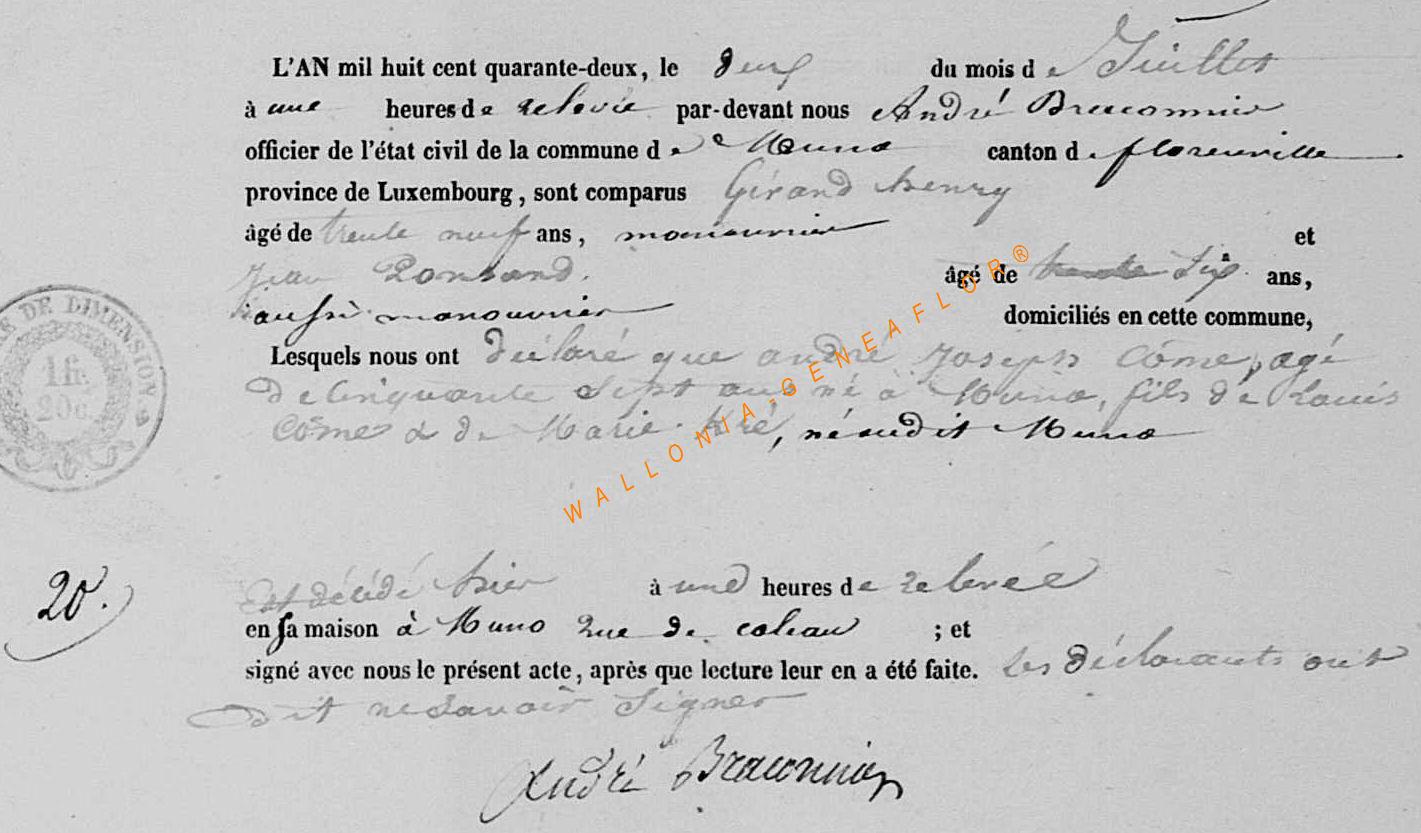 L'AN mil huit cent quarante-deux, le deux du mois de Juillet
à une heures de relevée par-devant nous André Braconnier
officier de l'état civil de la commune de Muno canton de florenville
province de Luxembourg, sont comparus Gérard henry
âgé de trente neuf ans, manouvrier et
Jean Ponsard. âgé de trente six ans,
aussi manouvrier domiciliés en cette commune,
Lesquels nous ont déclaré que andré Joseph Côme, agé
de cinquante Sept ans né à Muno, fils de Louis
Côme & de Marie, né audit Muno
20.
Est décédé hier à une heures de relevée
en sa maison à Muno rue de ; et
signé avec nous le présent acte, après que lecture leur en a été faite. Les déclarants ont
dit ne Savoir Signer
André Braconnier
DE DIMENSION
1 fr.
20 c.
WALLONIA-GENEAFLOR®